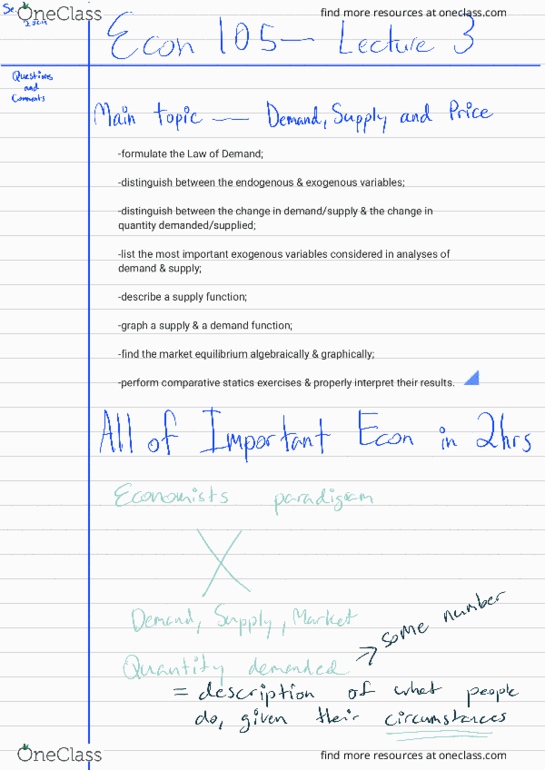 OneClass
find more resources at oneclass.com
Econ 105— Lecture 3
Questions
and
Comments
Main topic — Demand, Supply and Price
-formulate the Law of Demand;
-distinguish between the endogenous & exogenous variables;
-distinguish between the change in demand/supply & the change in
quantity demanded/supplied;
-list the most important exogenous variables considered in analyses of
demand & supply;
-describe a supply function;
-graph a supply & a demand function;
-find the market equilibrium algebraically & graphically;
-perform comparative statics exercises & properly interpret their results.
All of Important Econ in 2hrs
Economists paradigm
Demand, Supply, Market
Quantity demanded → some number
= description of what people
do, given their circumstances
OneClass
find more resources at oneclass.com